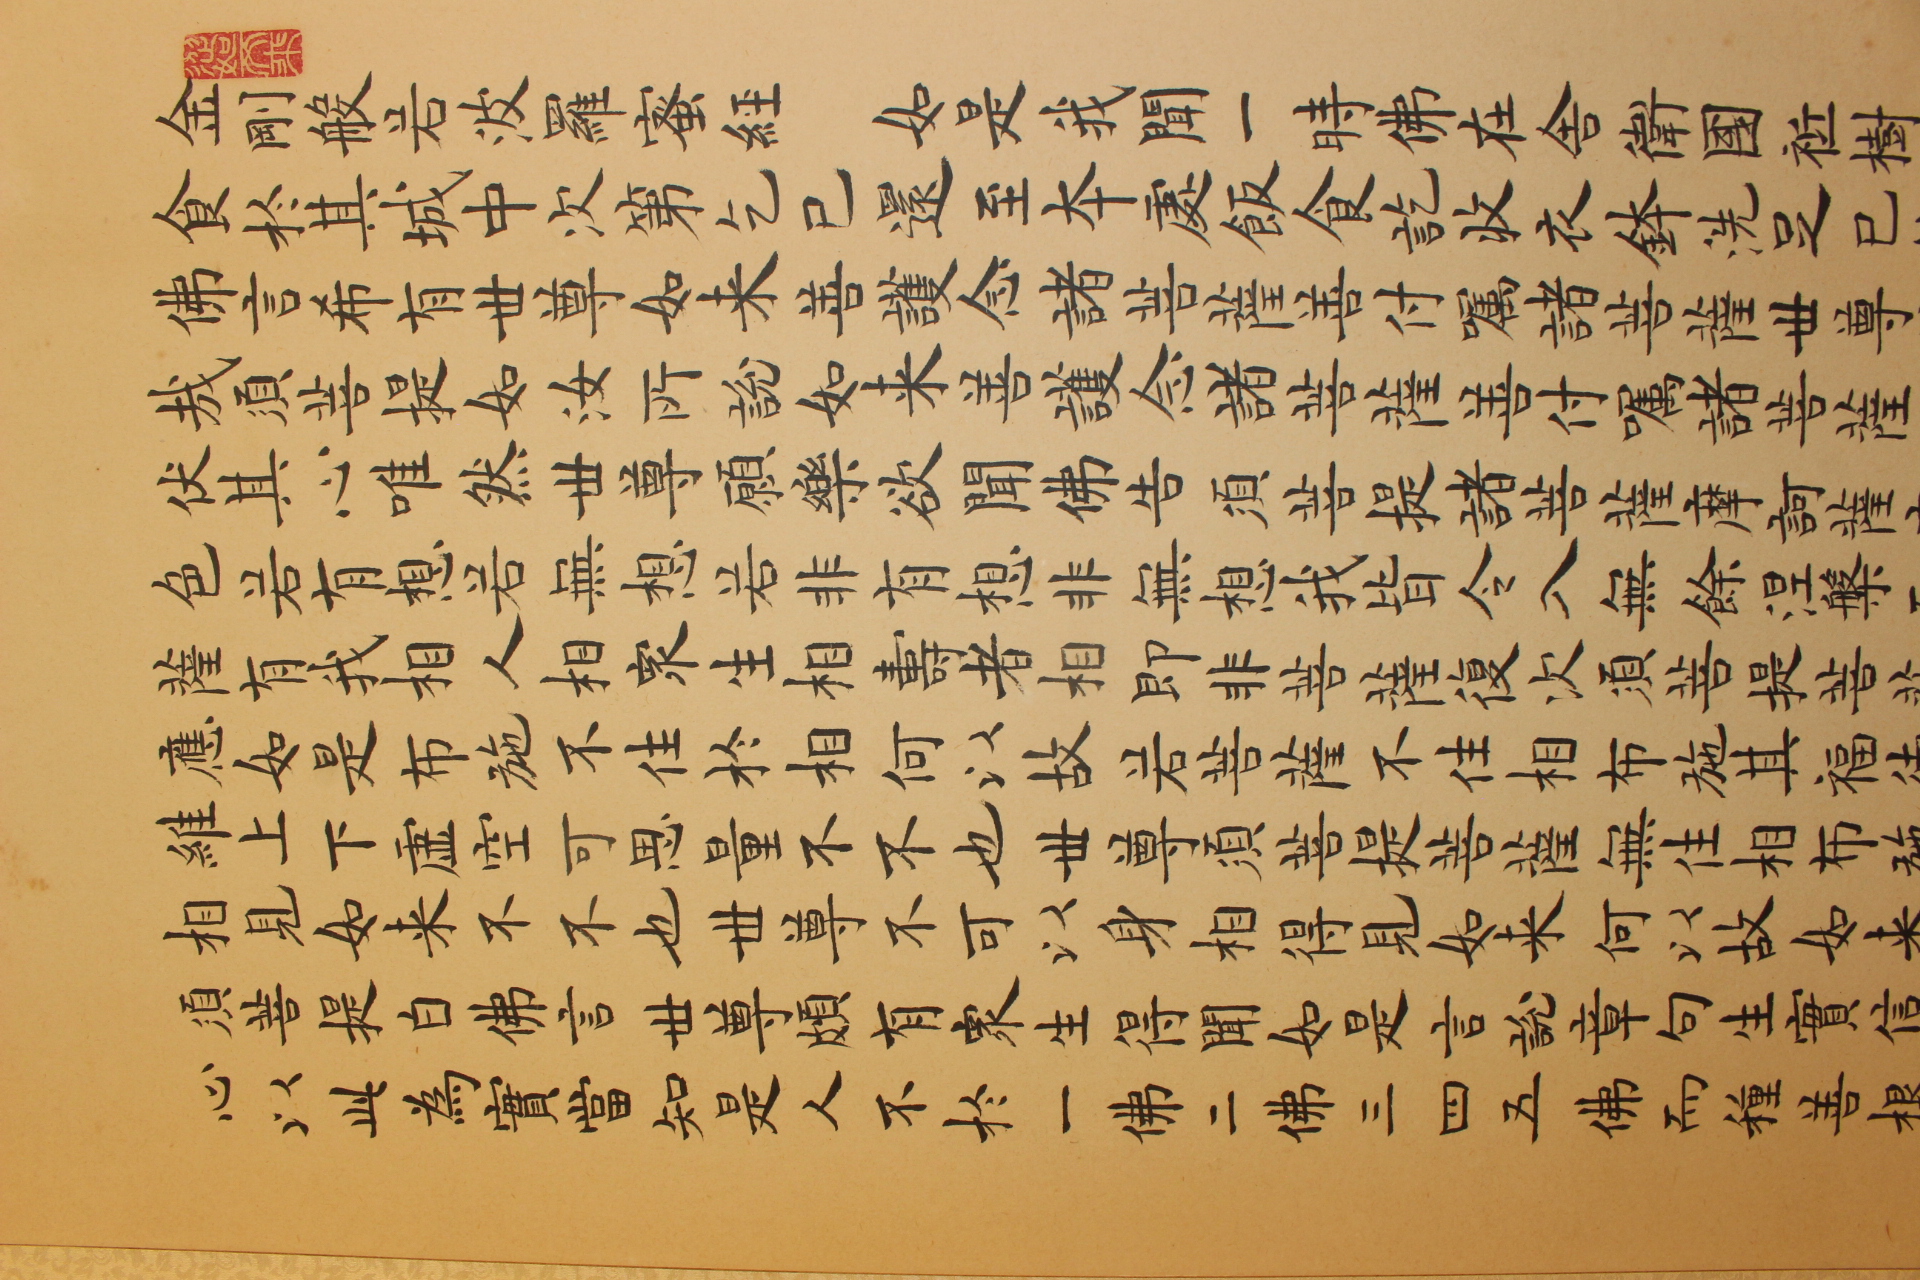 金剛般若波羅蜜経　如是我聞一時佛在舎衛國祇樹
食於其城中次第乞已還至本處飯食訖收衣鉢洗足已
佛言希有世尊如来善護念諸菩薩善付嘱諸菩薩世尊
哉須菩提如汝所說如来善護念諸菩薩善付嘱諸菩薩
伏其心唯然世尊願樂欲聞佛告須菩提諸菩薩摩訶薩
色若有想若無想若非有想非無想我皆令入無餘涅槃
薩有我相人相衆生相壽者相即非菩薩復次須菩提菩
應如是布施不住於相何以故若菩薩不住相布施其福
維上下虚空可思量不不也世尊須菩提菩薩無住相布施
相見如来不不也世尊不可以身相得見如来何以故如来
須菩提白佛言世尊頗有衆生得聞如是言說章句生實信
心以此為實當知是人不於一佛二佛三四五佛而種善根